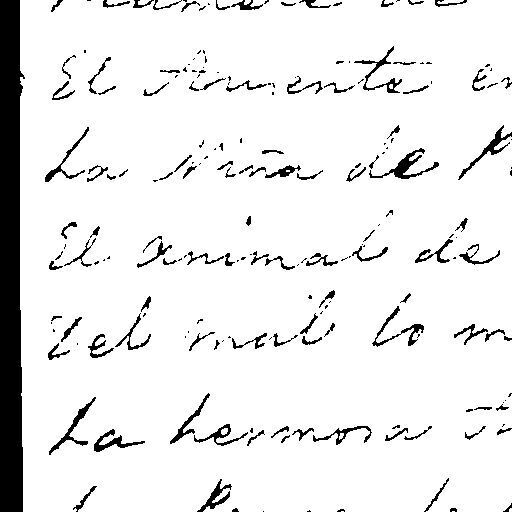 El Ausente en
La Niña de
El animal de
Del mal lo m
La hermosa